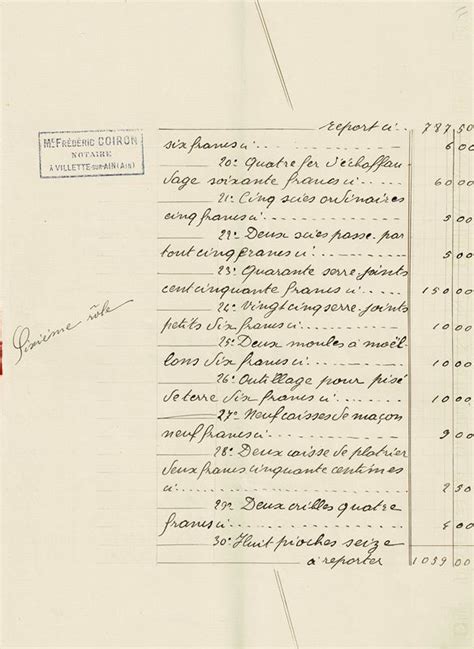 report ci 787 50
Mᵉ FRÉDÉRIC COIRON
NOTAIRE
A VILLETTE-SUR-AIN (AIN)
six francs ci 6 00
20° Quatre fer d'échaffau
dage soixante francs ci 60 00
21° Cinq scies ordinaires
cinq francs ci 5 00
22° Deux scies passe-par
tout cinq francs ci 5 00
23° Quarante serre-joints
cent cinquante francs ci 150 00
24° Vingt cinq serre-joints
petits dix francs ci 10 00
Sixième rôle
25° Deux moules à moël
lons dix francs ci 10 00
26° Outillage pour pisé
de terre dix francs ci 10 00
27° Neuf caisses de maçon
neuf francs ci 9 00
28° Deux caisse de platrier
deux francs cinquante centimes
ci 2 50
29° Deux crilles quatre
francs ci 4 00
30° Huit pioches seize
à reporter 1059 00